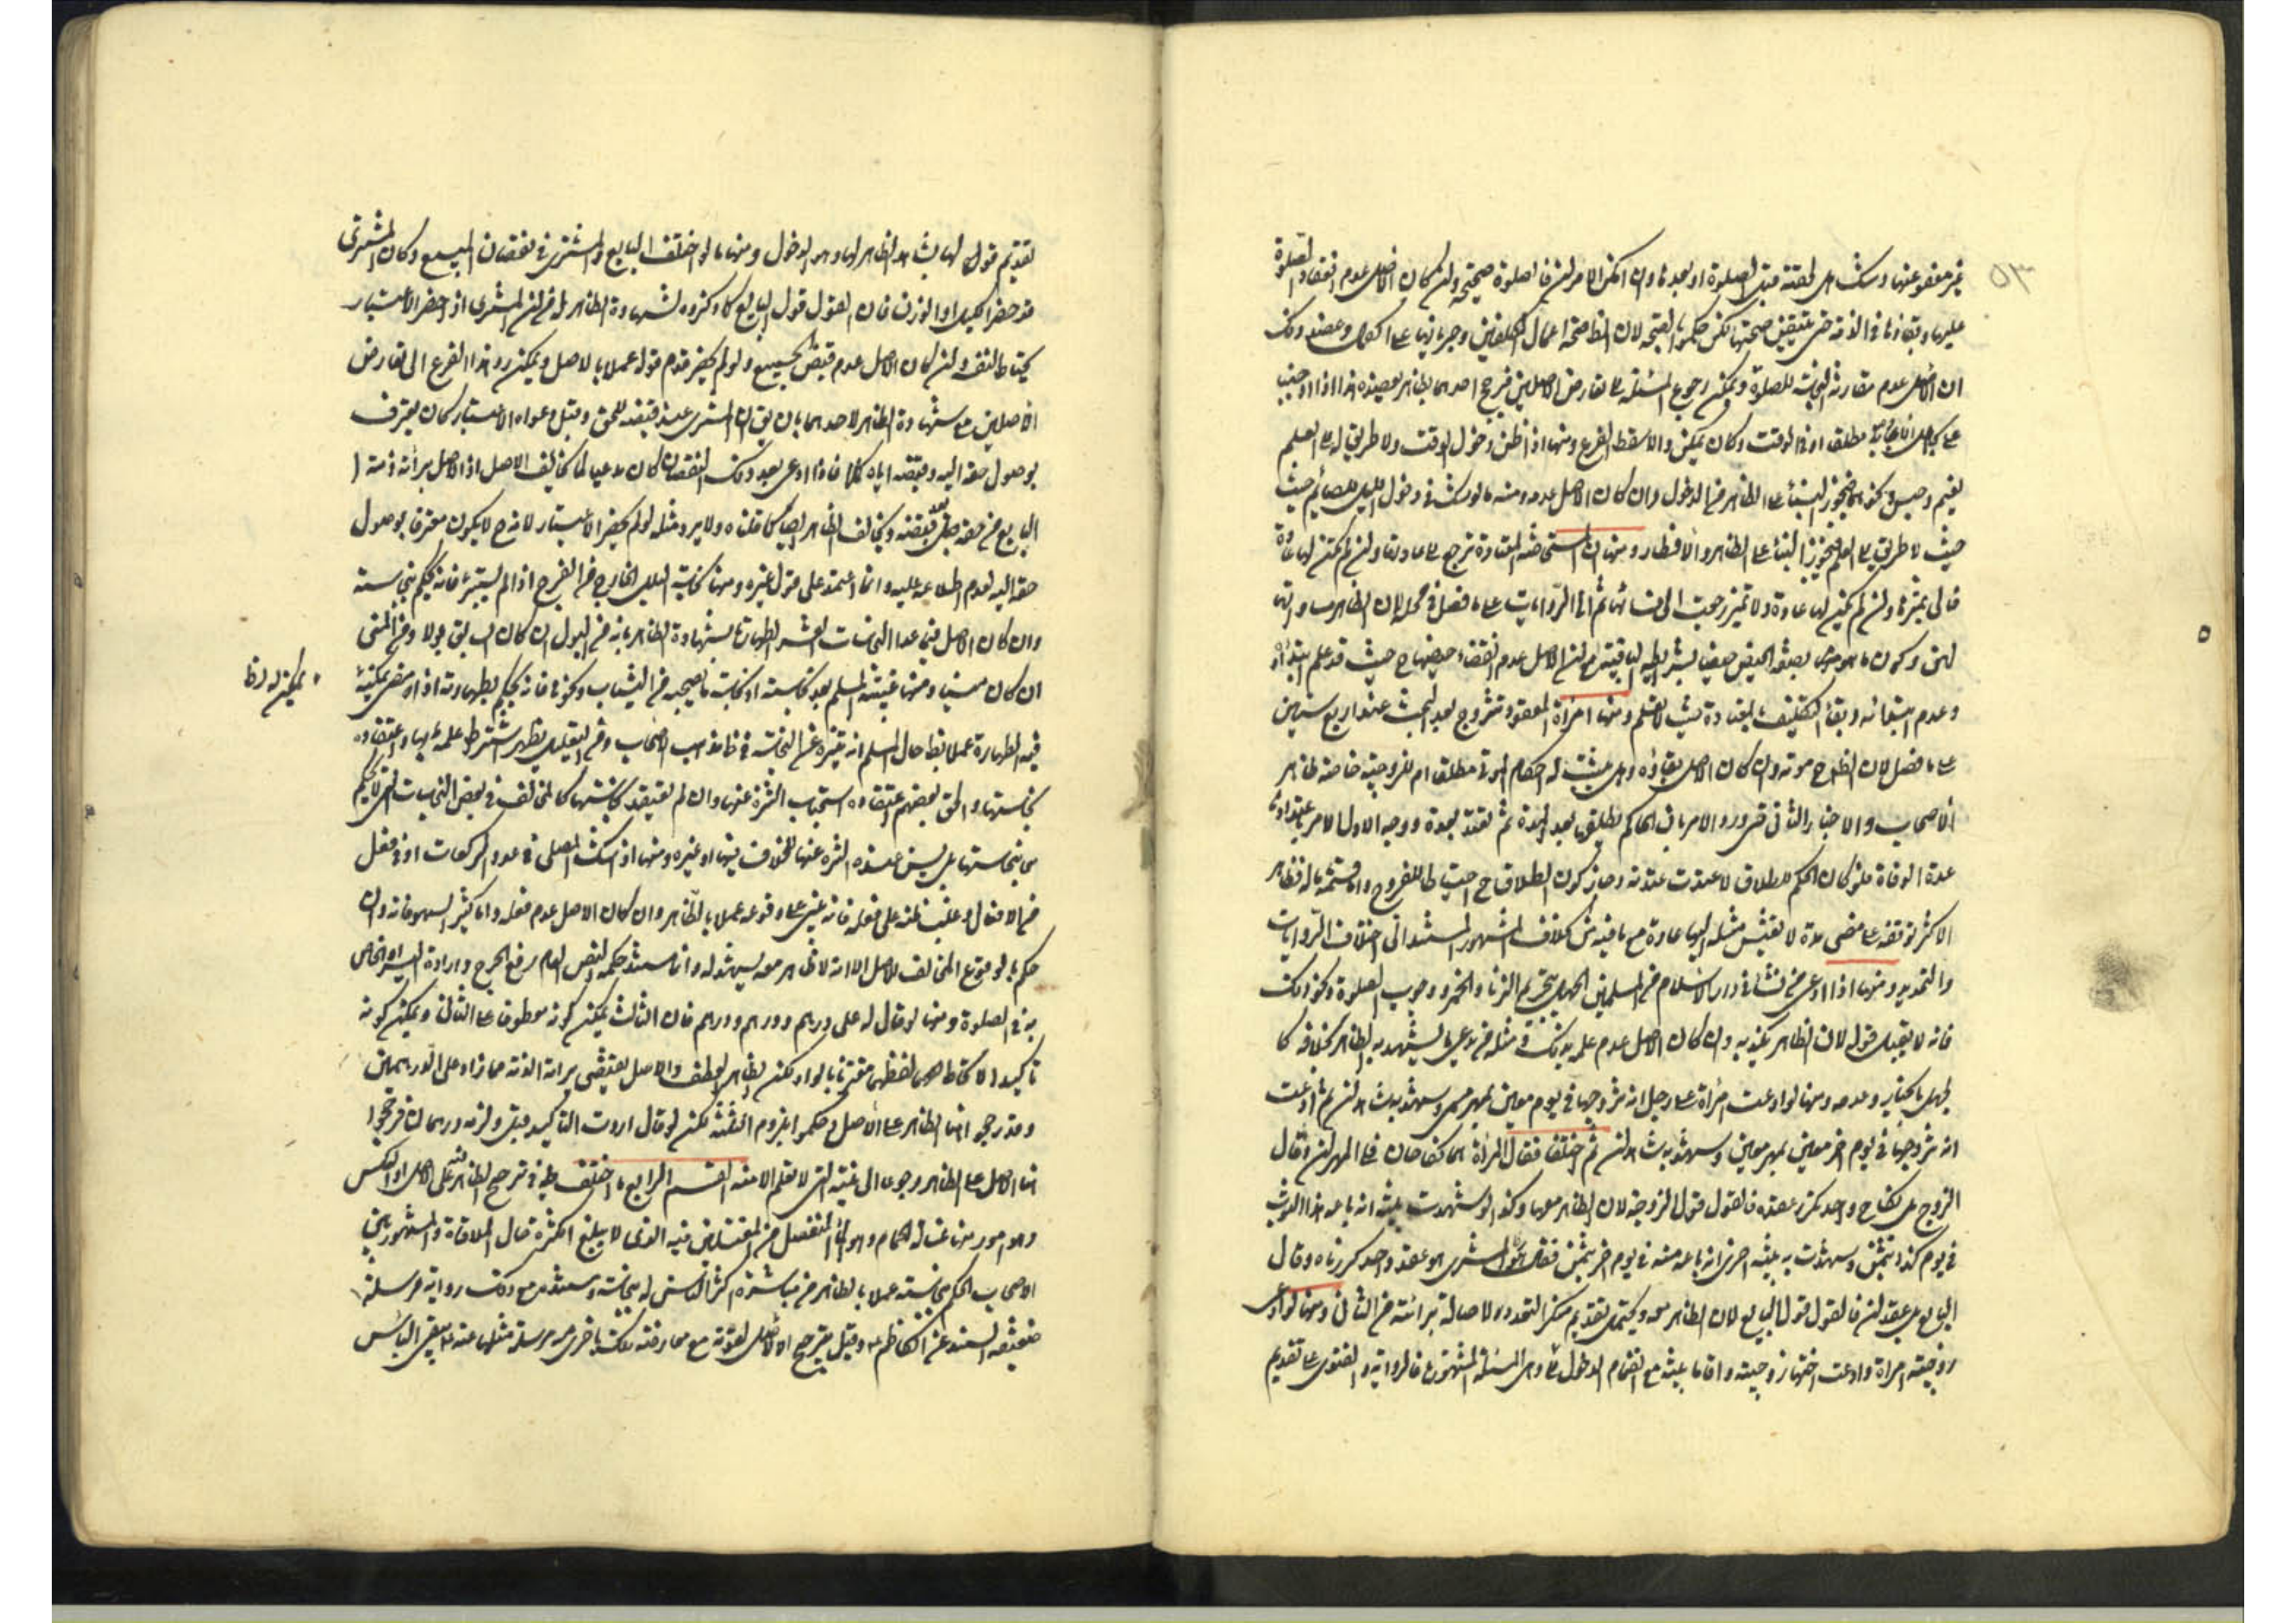 ٥٣
غير معفو عنها وشك هل لحقته قبل الصلوة او بعدها وان امكن الامران فالصلوة صحيحة وان كان الاصل عدم انعقاد الصلوة
عليها وبقاؤها في الذمة حتى يتيقن صحتها لكن حكموا بالصحة لان الظ صحة اعمال المكلفين وجريانها على الكمال وعضد ذلك
ان الاصل عدم مقارنة النجاسة للصلوة ويمكن رجوع المسئلة الى تعارض الاصلين فيرجح احدهما بظاهر يعضده هذا اذا اوجبنا
على الجاهل الاعادة مطلقا او في الوقت وكان يمكن والا سقط الفرع ومنها اذا ظن دخول الوقت ولا طريق له الى العلم
لغيم وحبس ونحوهما فيجوز البناء على الظاهر من الدخول وان كان الاصل عدمه ومنه ما لو شك في دخول الليل للصائم حيث
حيث لا طريق الى العلم فيجوز البناء على الظاهر والافطار ومنها ان المستحاضة المعتادة ترجع الى عادتها وان لم تكن لها عادة
فالى تميزها وان لم تكن لها عادة ولا تميز رجعت الى نسائها ثم الى الروايات على ما فصل في محله لان الظاهر مساواتها
لهن وكون ما هو بصفة الحيض حيضا بشرائطه الباقية مع ان الاصل عدم انقضاء حيضها ح حيث قد علم ابتداؤه
وعدم ابتدائه وبقاء التكليف بالعبادة حيث لا يعلم ومنها امرأة المفقود تتزوج بعد البحث عنه اربع سنين
على ما فصل لان الظ ح موته وان كان الاصل بقاؤه وهل يثبت له احكام الموتى مطلقا ام للزوجية خاصة ظاهر
الاصحاب والاخبار الثاني ضرورة الامر بان الحاكم يطلق بعد المدة ثم تعتد بعده ووجه الاول الامر باعتدادها
عدة الوفاة فلو كان الحكم للطلاق لاعتدت عدته وجاز كون الطلاق ح احتياطا للفروج واما قسمة ماله فظاهر
الاكثر توقفه على مضي مدة لا يعيش مثله اليها عادة مع ما فيه من خلاف المشهور المستند الى اختلاف الروايات
والتحديد ومنها اذا ادعى من نشأ في دار الاسلام من المسلمين الجهل بتحريم الزنا والخمر ووجوب الصلوة ونحو ذلك
فانه لا يقبل قوله لان الظاهر يكذبه وان كان الاصل عدم علمه بذلك ومثله من يدعي ما يشهد به الظاهر بخلافه كا
لجهل بالخيار وعدمه ومنها لو ادعت امرأة على رجل انه تزوجها في يوم معين بمهر مسمى وشهد به شاهدان ثم ادعت
انه تزوجها في يوم اخر معين بمهر معين وشهد به شاهدان ثم اختلفا فقالت المرأة هما نكاحان فلي المهران وقال
الزوج بل نكاح واحد تكرر عقده فالقول قول الزوجة لان الظاهر معها وكذا لو شهدت بينة انه باعه هذا الثوب
في يوم كذا بثمن وشهدت به بينة اخرى انه باعه منه في يوم اخر بثمن فقال المشتري هو عقد واحد كررناه وقال
البايع بل عقدان فالقول قول البايع لان الظاهر معه ويحتمل تقديم منكر التعدد لاصالة برائته من الثاني ومنها لو ادعى
زوجية امراة وادعت اختها زوجيته واقاما بينة مع انضمام الدخول وهي المسئلة المشهورة فالرواية والفتوى على تقديم
تقديم قولها لشاهد الظاهر لها وهو الدخول ومنها ما لو اختلف البايع والمشتري في نقصان المبيع وكان المشتري
قد حضر الكيل او الوزن فان القول قول البايع كما ذكروه لشهادة الظاهر له من ان المشتري اذا حضر الاعتبار
يحتاط لنفسه وان كان الاصل عدم قبض الجميع ولو لم يحضر قدم قوله عملا بالاصل ويمكن رد هذا الفرع الى تعارض
الاصلين مع شهادة الظاهر لاحدهما بان يق ان المشتري عند قبضه للحق وقبل دعواه الاعتبار كان يعترف
بوصول حقه اليه وقبضه اياه كملا فاذا ادعى بعد ذلك النقصان كان مدعيا لما يخالف الاصل اذ الاصل برائة ذمة
البايع من حقه بعد قبضه ويخالف الظاهر ايضا كما قلناه ولا يرد مثله لو لم يحضر الاعتبار لانه ح لا يكون معترفا بوصول
حقه اليه لعدم اطلاعه عليه وانما اعتمد على قول غيره ومنها نجاسة البلل الخارج من الفرج اذا لم يستبرئ فانه يحكم بنجاسته
وان كان الاصل فيما عدا النجاسات العشر الطهارة لشهادة الظاهر بانه من البول ان كان السابق بولا ومن المني
ان كان منيا ومنها غيبة المسلم بعد نجاسته او نجاسة ما يصحبه من الثياب ونحوها فانه يحكم بطهارته اذا مضى زمان يمكنه
فيه الطهارة عملا بظ حال المسلم انه يتنزه عن النجاسة في ظاهر مذهب الاصحاب ومن التعليل يظهر اشتراط علمه بها واعتقاده
نجاستها والحق بعضهم اعتقاده استحباب التنزه عنها وان لم يعتقد نجاستها كالمخالف في بعض النجاسات التي لا يحكم
بنجاستها بل يسن عنده التنزه عنها للخلاف فيها او غيره ومنها اذا شك المصلي في عدد الركعات او في فعل
من الافعال وغلب ظنه على فعله فانه يبني على وقوعه عملا بالظاهر وان كان الاصل عدم فعله واما كثير السهو فانه وان
حكم بالوقوع المخالف للاصل الا انه لا ظاهر معه يشهد له وانما مستند حكمه النص العام برفع الحرج وارادة اليسر والخاص
به في الصلوة ومنها لو قال له علي درهم ودرهم ودرهم فان الثالث يمكن كونه معطوفا على الثاني ويمكن كونه
تاكيدا له لاتحاد لفظهما مقترنا بالواو لكن الظاهر العطف والاصل يقتضي برائة الذمة مما زاد على الدرهمين
وقد رجحوا هنا الظاهر على الاصل وحكموا بلزوم الثلثة لكن لو قال اردت التاكيد قبل ولزمه درهمان فرجحوا
هنا الاصل على الظاهر رجوعا الى نيته التي لا تعلم الا منه القسم الرابع ما اختلف فيه في ترجيح الظاهر على الاصل او بالعكس
وهو امور منها غسالة الحمام وهو الماء المنفصل من المغتسلين فيه الذي لا يبلغ الكثرة حال الملاقاة والمشهور بين
الاصحاب الحكم بنجاسته عملا بالظاهر من مباشرة اكثر الناس له بنجاسة ومستنده مع ذلك رواية مرسلة
ضعيفة السند عن الكاظم ع وقيل يرجح الاصل لقوته مع معارضة تلك باخرى مرسلة مثلها عنه ع بنفي الباس